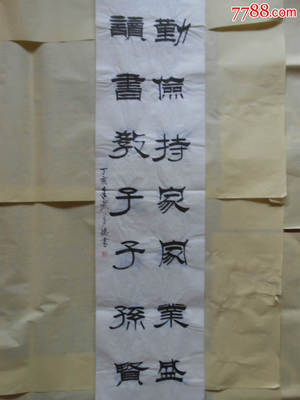 7788.com
勤儉持家家業盛
讀書教子子孫賢
丁亥年
書